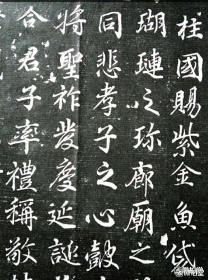 柱國賜紫金魚袋
瑚璉之珎廊廟之
同悲孝子之心鼓
將聖祚發慶延誕
合君子率禮稱敬